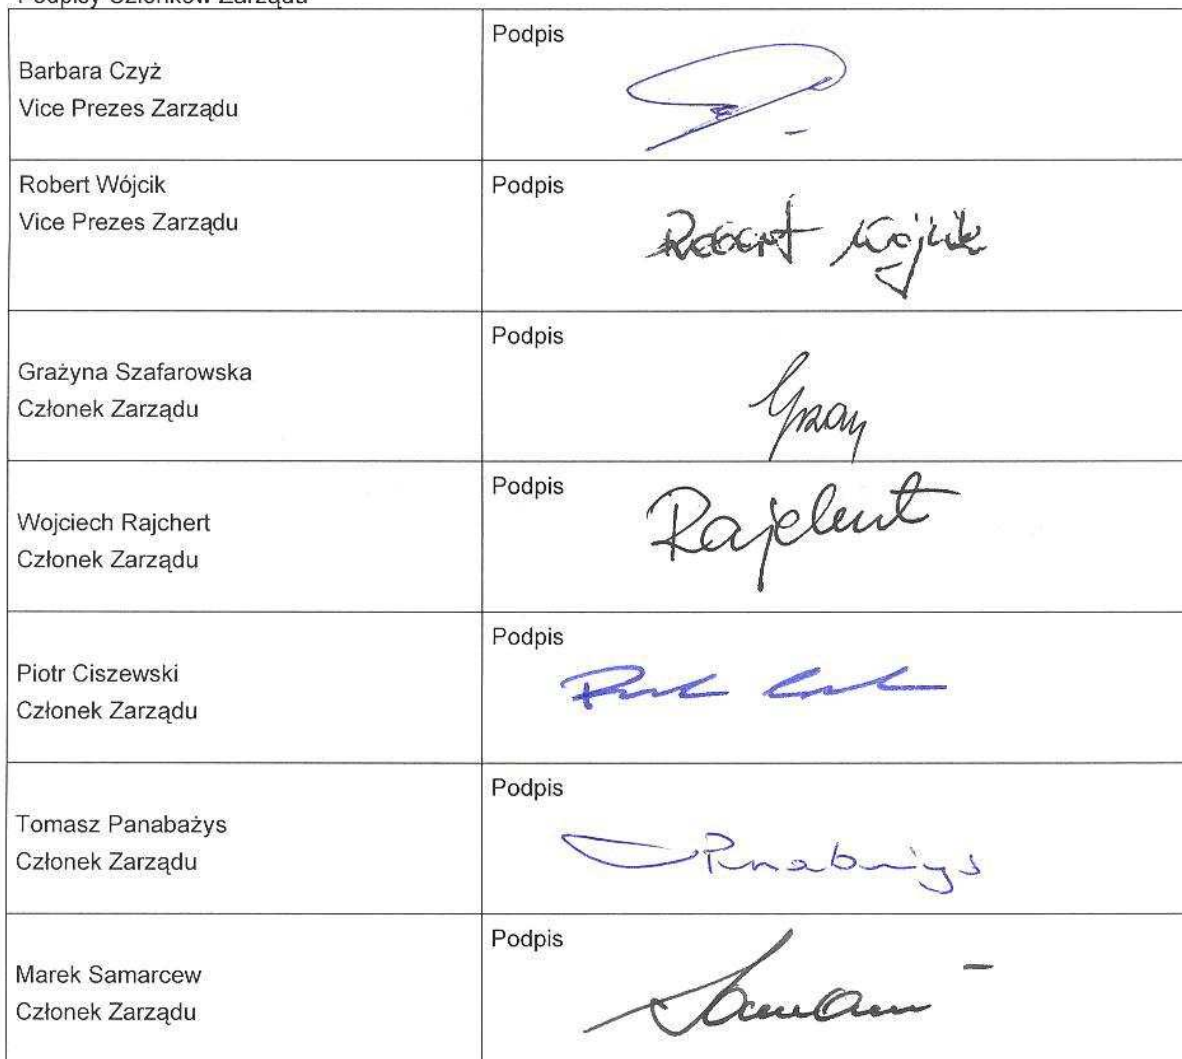 Podpisy Członków Zarządu
Barbara Czyż
Vice Prezes Zarządu
Podpis
Robert Wójcik
Vice Prezes Zarządu
Podpis
Robert Wójcik
Grażyna Szafarowska
Członek Zarządu
Podpis
Wojciech Rajchert
Członek Zarządu
Podpis
Rajchert
Piotr Ciszewski
Członek Zarządu
Podpis
Tomasz Panabażys
Członek Zarządu
Podpis
Panabażys
Marek Samarcew
Członek Zarządu
Podpis